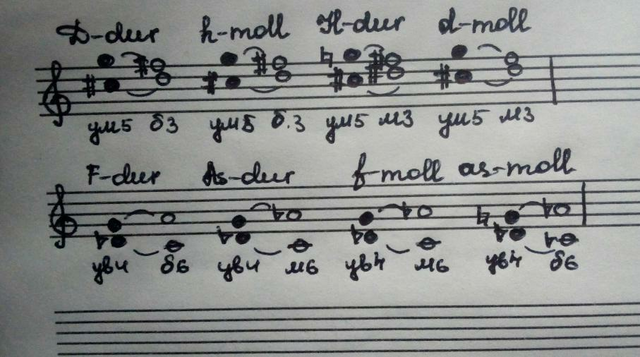 D-dur h-moll H-dur d-moll
ум5 б3 ум5 б.3 ум5 м3 ум5 м3
F-dur As-dur f-moll as-moll
ув4 б6 ув4 м6 ув4 м6 ув4 б6